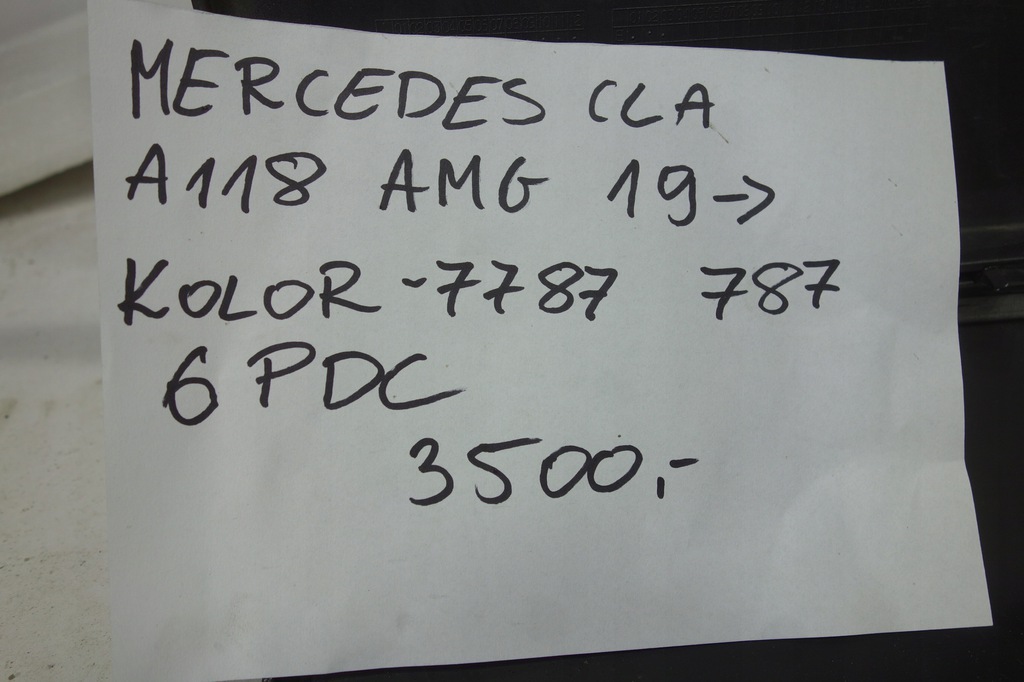 MERCEDES CLA
A118 AMG 19->
KOLOR -7787 787
6 PDC
3500,-